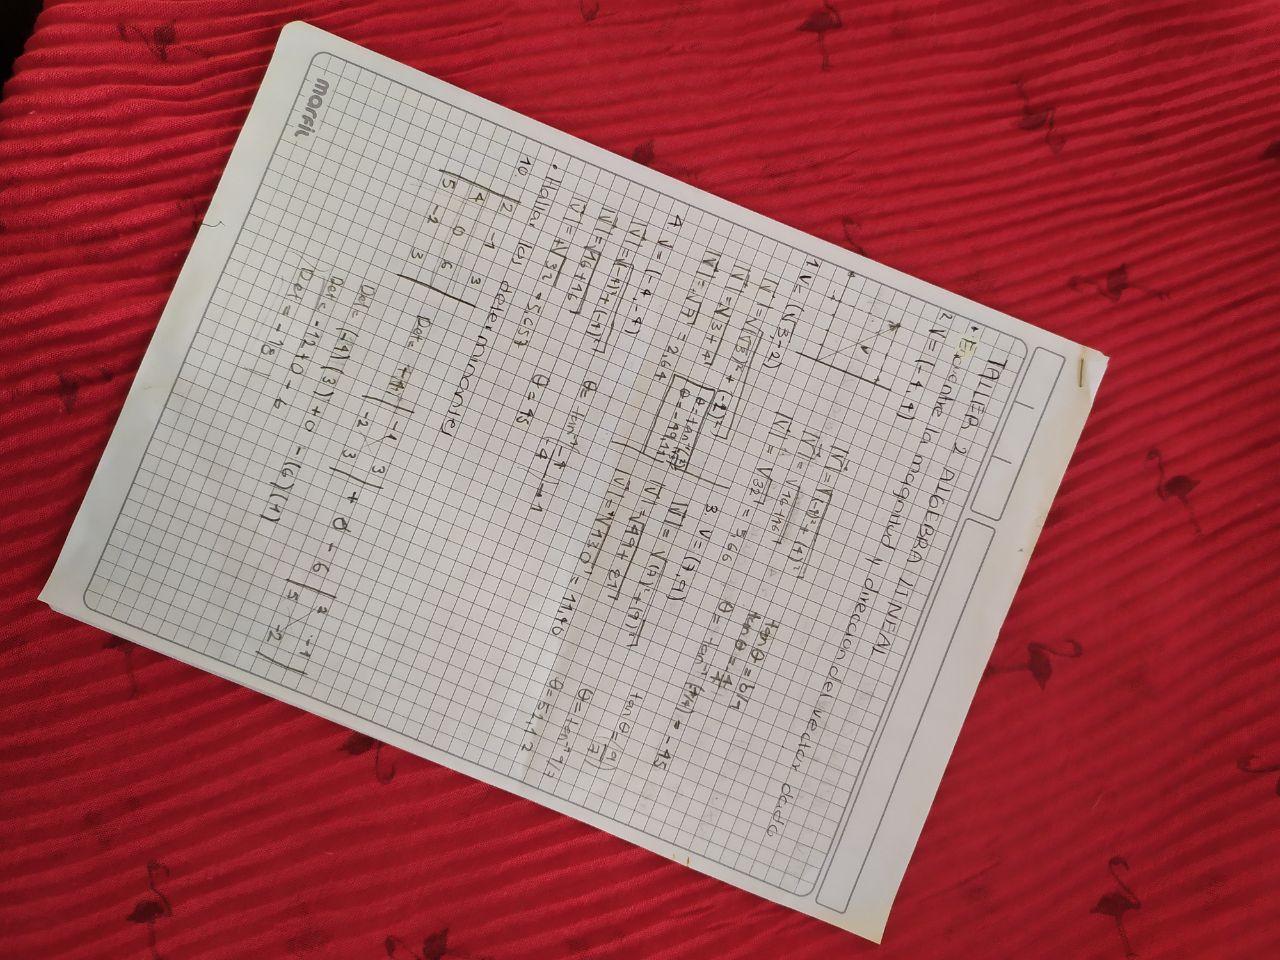 TALLER 2 ALGEBRA LINEAL
• Encuentre la magnitud y direccion del vector dado
2. V = (-4, 4)
V
|V| = √(-4)² + (4)²
|V| = √16 + 16
|V| = √32 = 5,66
tan θ = b/a
tan θ = 4/-4
θ = tan⁻¹ (4/-4) = -45
1. V = (√3, -2)
|V| = √(√3)² + (-2)²
|V| = √3 + 4
|V| = √7 = 2,64
θ = tan⁻¹
θ = -49,11
3. V = (7, 9)
|V| = √(7)² + (9)²
|V| = √49 + 81
|V| = √130 = 11,40
tan θ = (9/7)
θ = tan⁻¹ 9/7
θ = 52,12
4. V = (-4, -4)
|V| = √(-4)² + (-4)²
|V| = √16 + 16
|V| = √32 = 5,657
θ = tan⁻¹ -4/-4 = 1
θ = 45
• Hallar los determinantes
10.
2 -1 3
4 0 6
5 -2 3
Det = -4 | -1 3 | + 0 - 6 | 2 -1 |
| -2 3 | | 5 -2 |
Det = (-4) (3) + 0 - (6) (1)
Det = -12 + 0 - 6
Det = -18
marfil